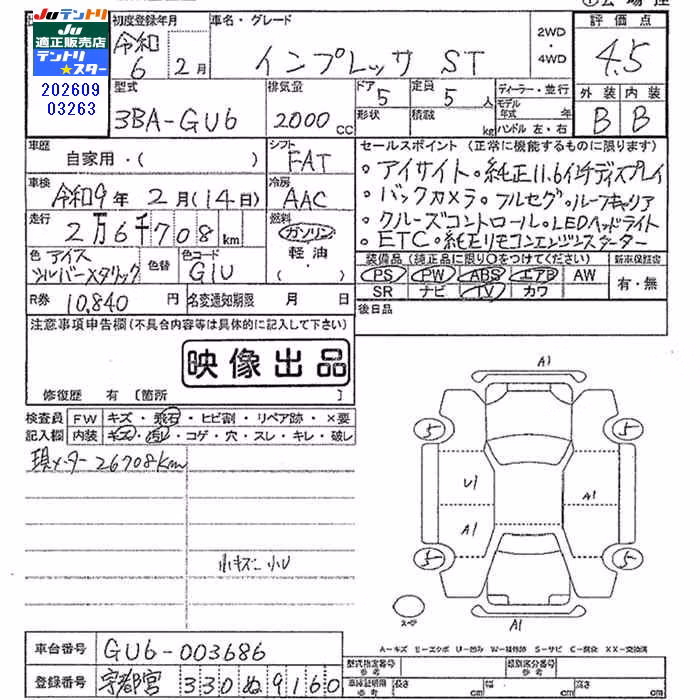 JUテントリ
JU 適正販売店
テントリ★スター
202609
03263
初度登録年月
車名・グレード
令和6 2月
インプレッサ ST
2WD
・
4WD
評価点
4.5
型式
3BA-GU6
排気量
2000 cc
ドア 5
形状
定員 5 人
積載 kg
ディーラー・並行
モデル年式 年
ハンドル 左・右
外装 内装
B B
車歴
自家用・( )
シフト
FAT
車検
令和9年2月(14日)
冷房
AAC
走行
2万6千708km
燃料
ガソリン
軽油
・( )
色 アイスシルバーメタリック
色替
色コード
G1U
R券 10,840 円
名変通知期限 月 日
セールスポイント (正常に機能するものに限ります)
・アイサイト・純正11.6インチディスプレイ
・バックカメラ・フルセグ・ルーフキャリア
・クルーズコントロール・LEDヘッドライト
・ETC・純正リモコンエンジンスターター
装備品(純正品に限り○をつけてください)
新車保証書
PS PW ABS エアB AW
SR ナビ TV カワ
有・無
後日品
注意事項申告欄(不具合内容等は具体的に記入して下さい)
映像出品
修復歴 有 〔箇所 〕
検査員記入欄
FW キズ・飛石・ヒビ割・リペア跡・×要
内装 キズ・汚レ・コゲ・穴・スレ・キレ・破レ
現メーター26708km
小キズ 小U
A1
5
5
U1
A1
A1
5
5
スペアー
A1
A-キズ E-エクボ U-凹み W-補修跡 S-サビ C-腐食 XX-交換済
車台番号 GU6-003686
登録番号 宇都宮 330 ぬ 9160
型式指定番号 参考
類別区分番号 参考
車庫証明用 参考 長さ cm 幅 cm 高さ cm